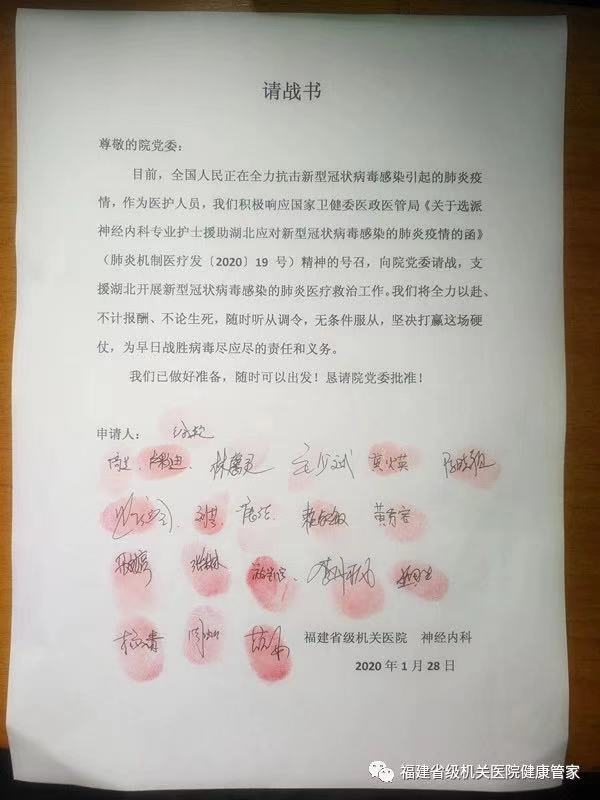 请战书
尊敬的院党委：
目前，全国人民正在全力抗击新型冠状病毒感染引起的肺炎疫
情，作为医护人员，我们积极响应国家卫健委医政医管局《关于选派
神经内科专业护士援助湖北应对新型冠状病毒感染的肺炎疫情的函》
（肺炎机制医疗发〔2020〕19 号）精神的号召，向院党委请战，支
援湖北开展新型冠状病毒感染的肺炎医疗救治工作。我们将全力以赴、
不计报酬、不论生死，随时听从调令，无条件服从，坚决打赢这场硬
仗，为早日战胜病毒尽应尽的责任和义务。
我们已做好准备，随时可以出发！恳请院党委批准！
申请人：
福建省级机关医院 神经内科
2020 年 1 月 28 日
福建省级机关医院健康管家